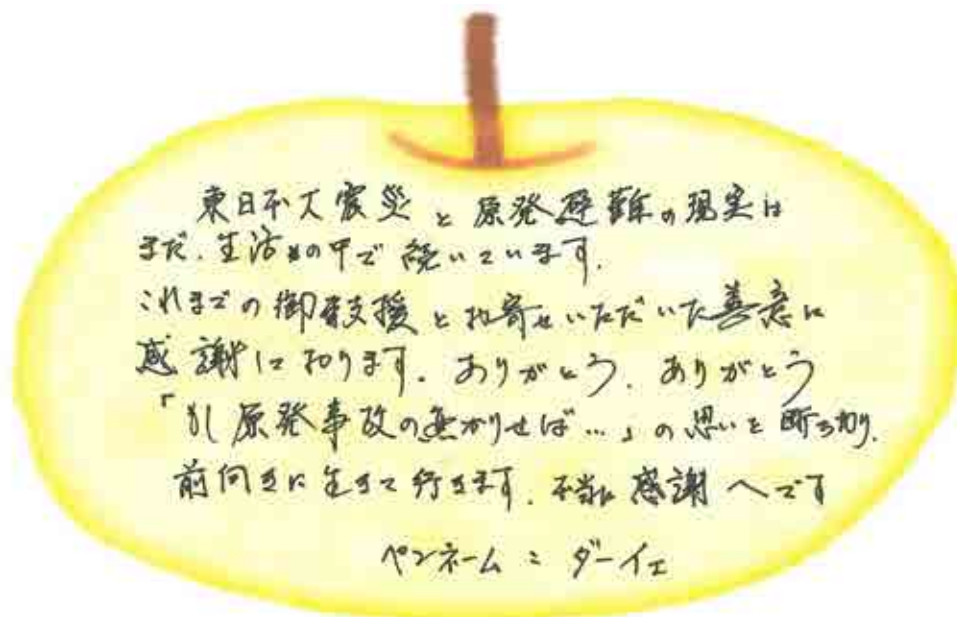 東日本大震災と原発避難の現実は
まだ、生活の中で続いています。
これまでの御支援とお寄せいただいた善意に
感謝しております。ありがとう、ありがとう
「もし原発事故の無かりせば…」の思いを断ち切り、
前向きに生きて行きます。本当に感謝へです
ペンネーム:ダーイェ